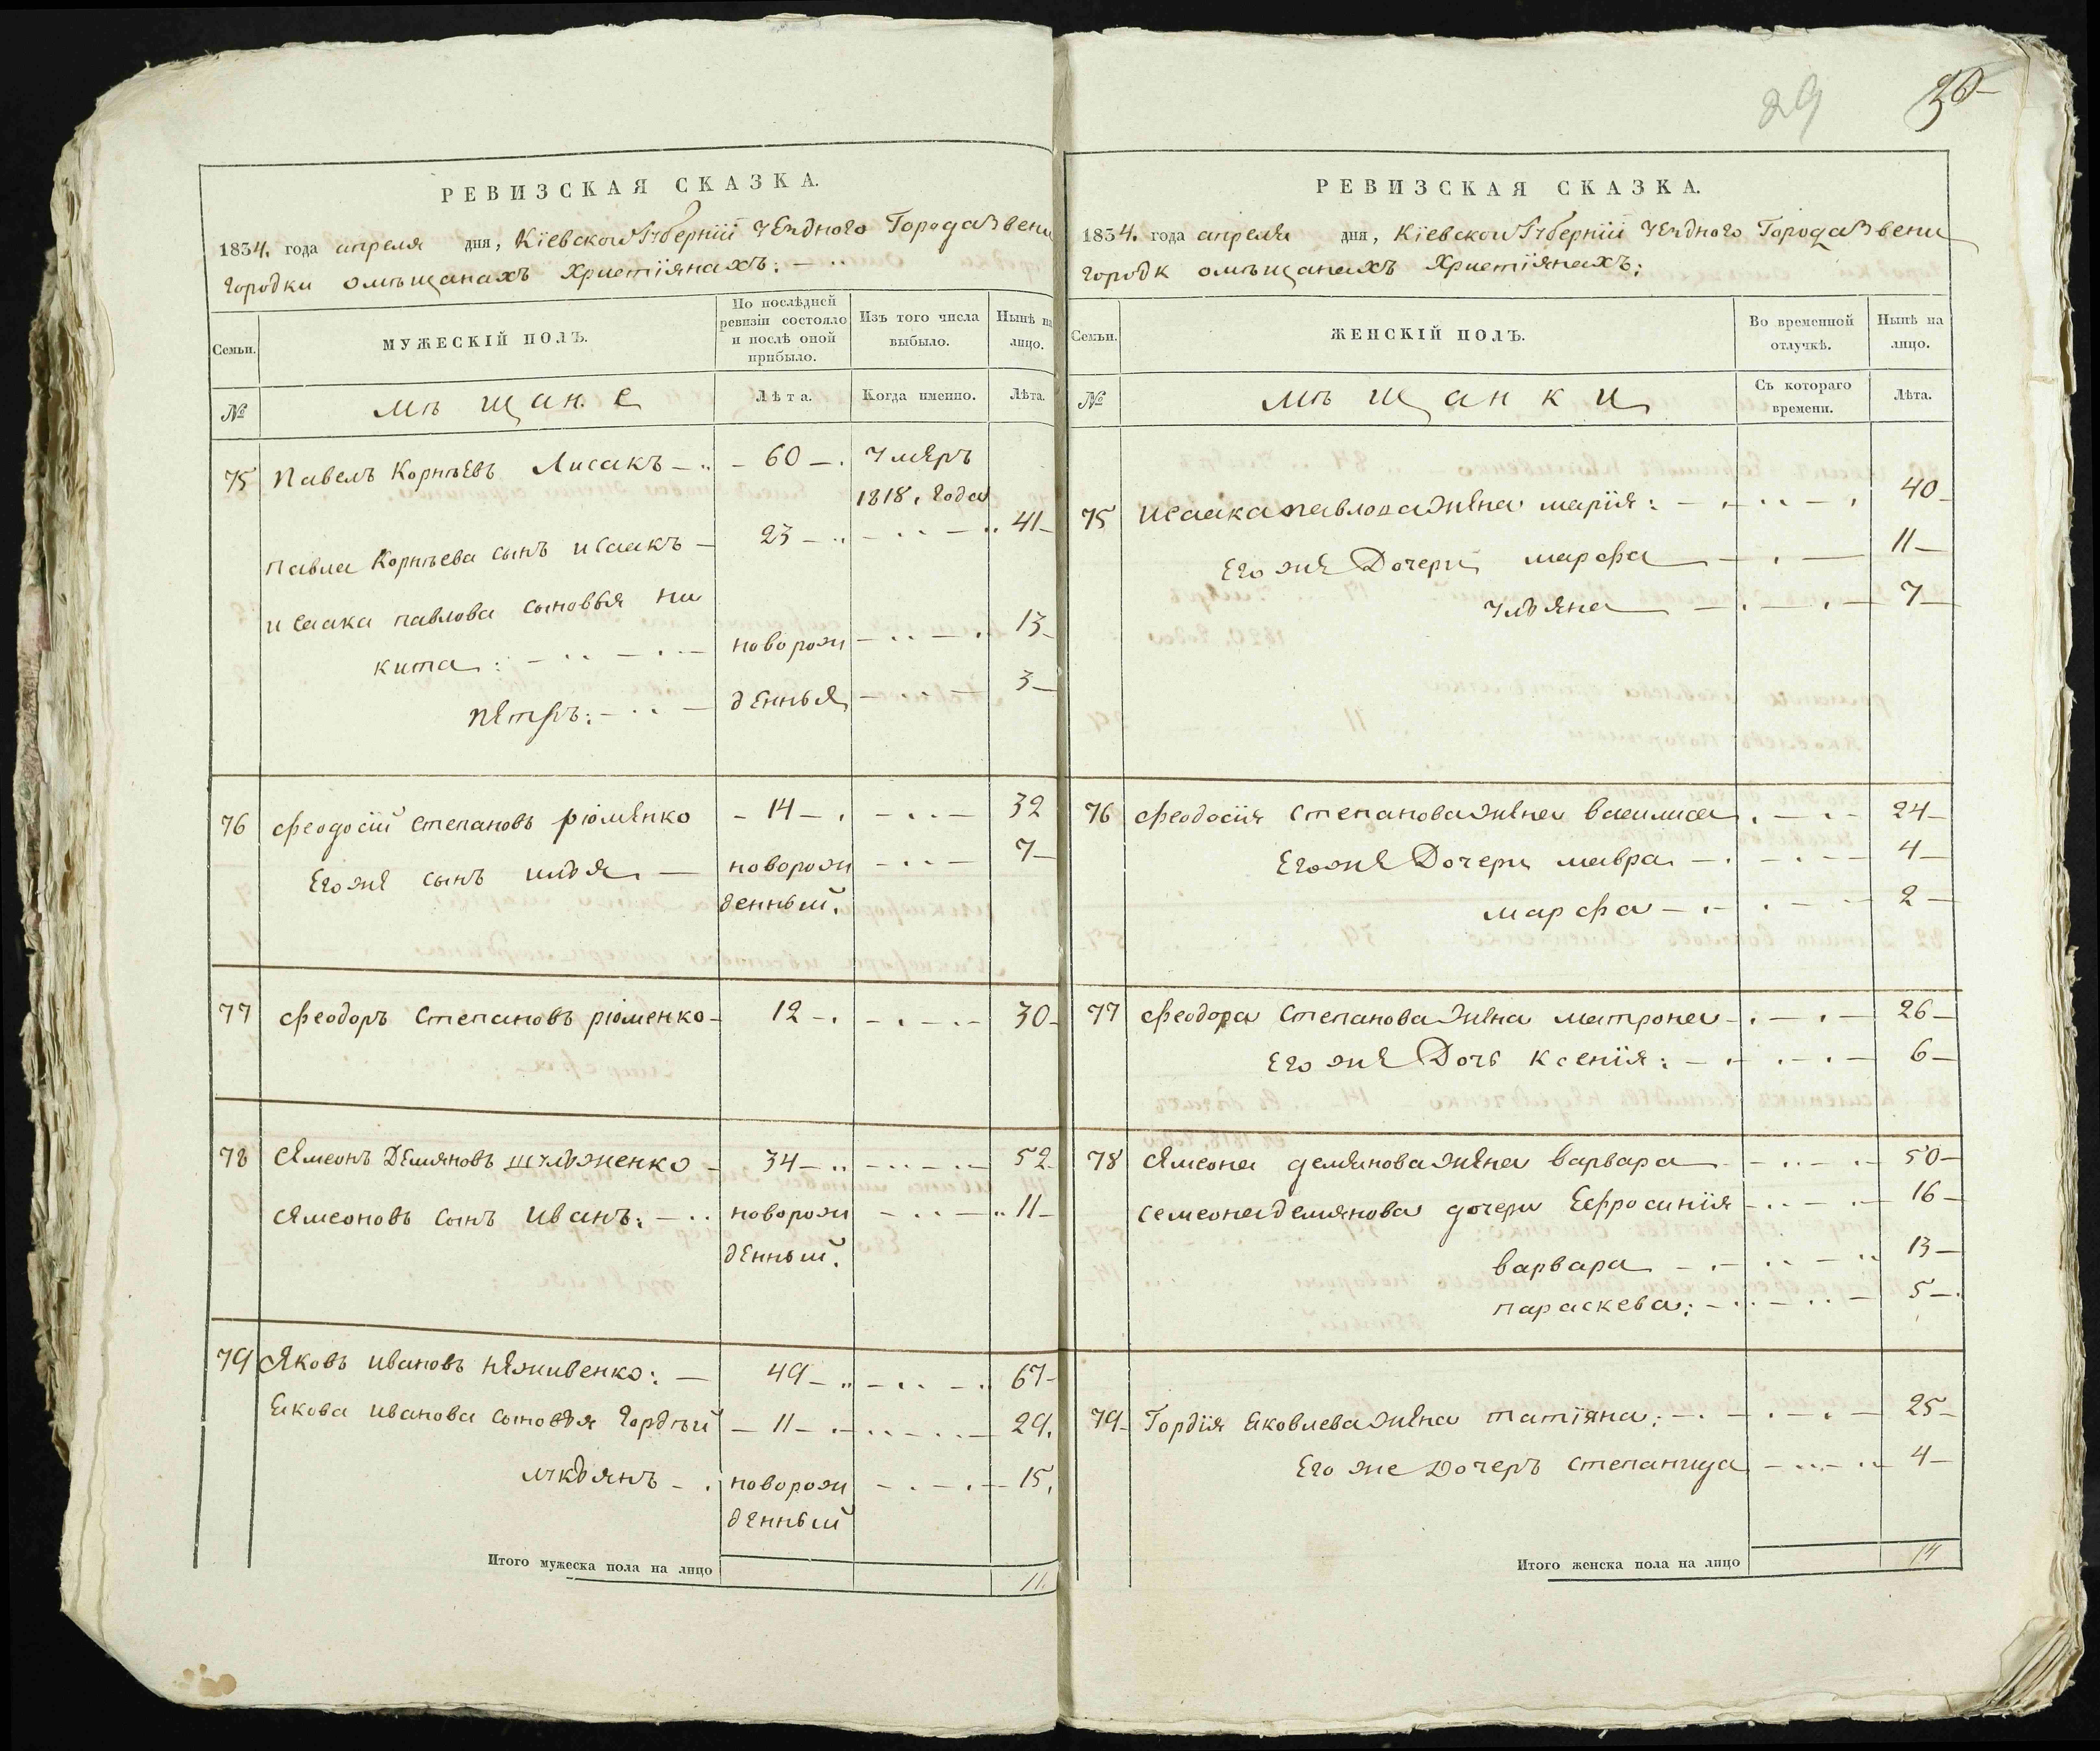 29
30
РЕВИЗСКАЯ СКАЗКА.
1834. года апреля дня, Кіевской Губерніи Уезднаго Города Звени
городки омѣщанахъ Христіянахъ:
Семьи.
МУЖЕСКІЙ ПОЛЪ.
По послѣдней ревизіи состояло и послѣ оной прибыло.
Изъ того числа выбыло.
Нынѣ на лицо.
№
мѣщане
Лѣта.
Когда именно.
Лѣта.
75 Павелъ Корнѣевъ Лисакъ 60 умеръ
1818. года
Павла Корнѣева сынъ исаакъ 23 41
исаака павлова сыновья ни
кита: новорож 13
петръ: денныя 3
76 Феодосій Степановъ ріоменко 14 32
Его же сынъ илья новорож 7
денный.
77 Феодоръ Степановъ ріоменко 12 30
78 Семеонъ Демяновъ шульженко 34 52
Семеоновъ сынъ иванъ: новорож 11
денный.
79 Яковъ ивановъ неживенко: 49 67
Екова иванова сыновья Гордѣй 11 29.
лукьянъ новорож 15.
денный
Итого мужеска пола на лицо 11.
РЕВИЗСКАЯ СКАЗКА.
1834. года апреля дня, Кіевской Губерніи Уезднаго Города Звени
городк омѣщанахъ Христіянахъ:
Семьи.
ЖЕНСКІЙ ПОЛЪ.
Во временной отлучкѣ.
Нынѣ на лицо.
№
мѣщанки
Съ котораго времени.
Лѣта.
75 исаака павлова жена марія: 40
Его же Дочери марфа 11
ульяна 7
76 Феодосія Степанова жена василиса 24
Его же Дочери мавра 4
марфа 2
77 Феодора Степанова жена матрона 26
Его же Дочь ксенія: 6
78 Семеона демянова жена варвара 50
семеона демянова дочери Ефросинія 16
варвара 13
параскева: 5
79 Гордія Яковлева жена татіяна: 25
Его же Дочеръ степанида 4
Итого женска пола на лицо 14